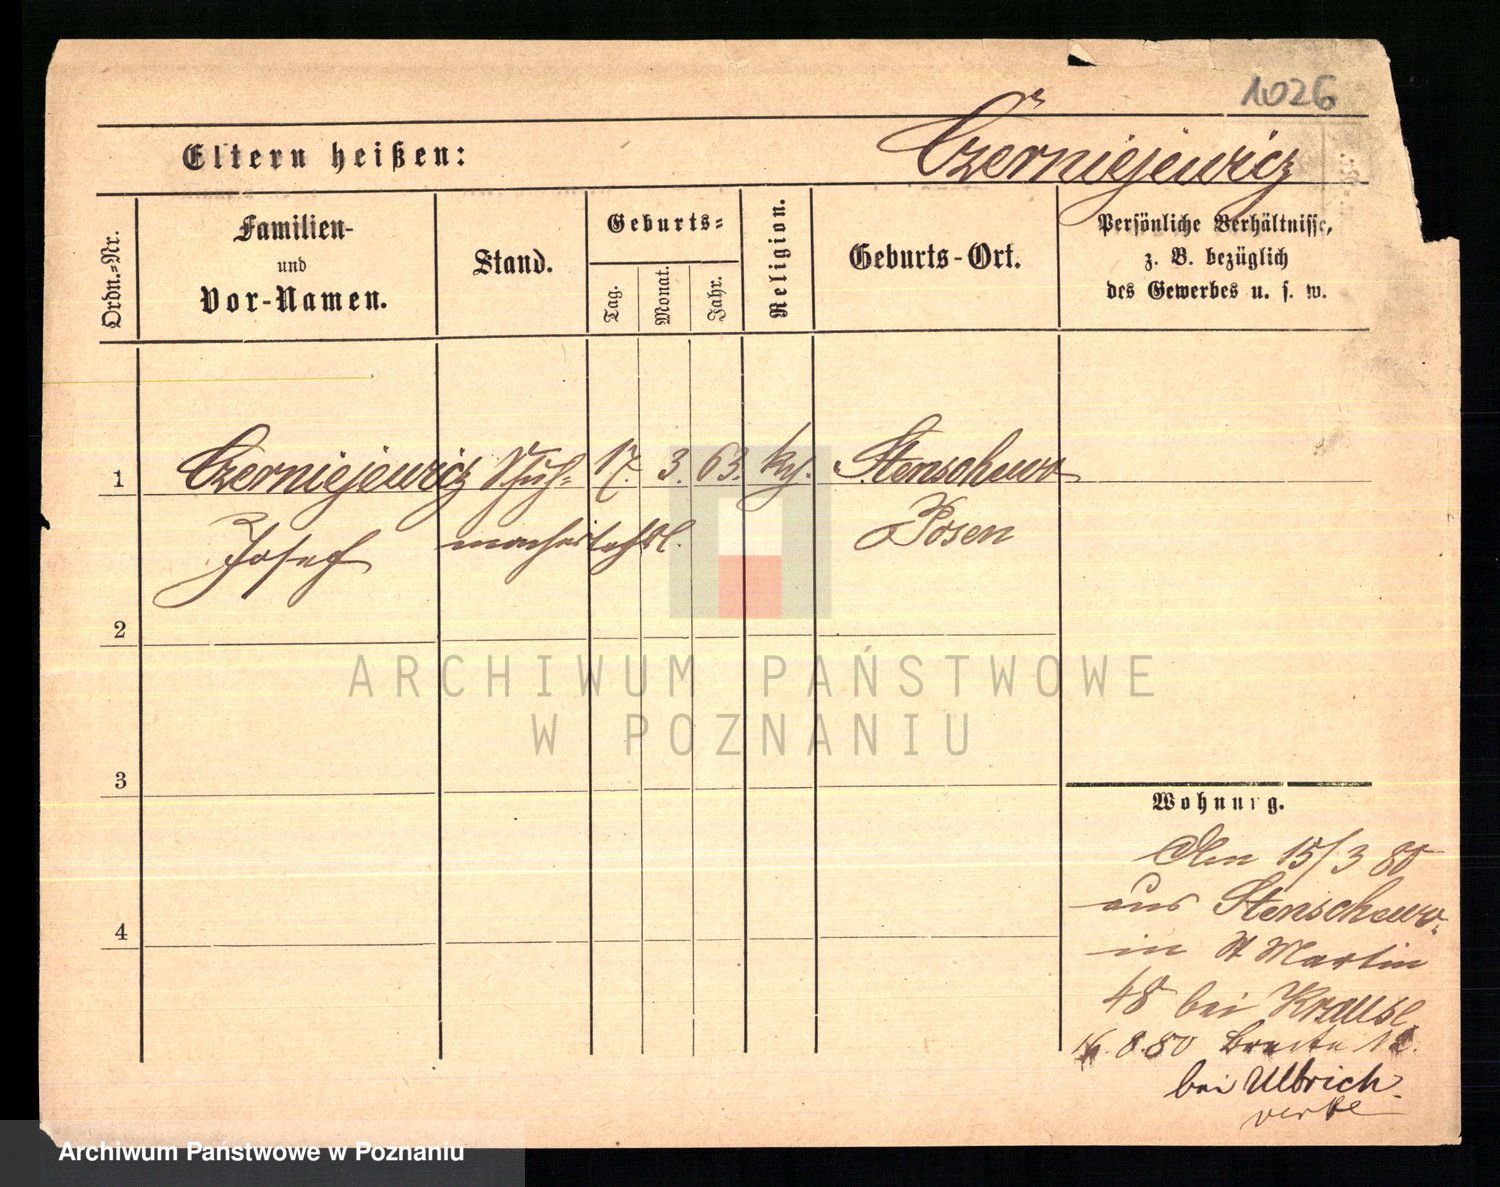 1026
Eltern heißen: Czerniejewicz
Ordn.-Nr.
Familien-
und
Vor-Namen.
Stand.
Geburts-
Tag.
Monat.
Jahr.
Religion.
Geburts-Ort.
Persönliche Verhältnisse,
z. B. bezüglich
des Gewerbes u. s. w.
1 Czerniejewicz Schuh- 17. 3. 63. Stenschewo
Josef macherlehrl. Posen
2
3
4
Wohnung.
Den 15/3 80
aus Stenschewo
in St Martin
48 bei Krause
16.8.80 Breite
bei Ullrich
ARCHIWUM PAŃSTWOWE
W POZNANIU
Archiwum Państwowe w Poznaniu